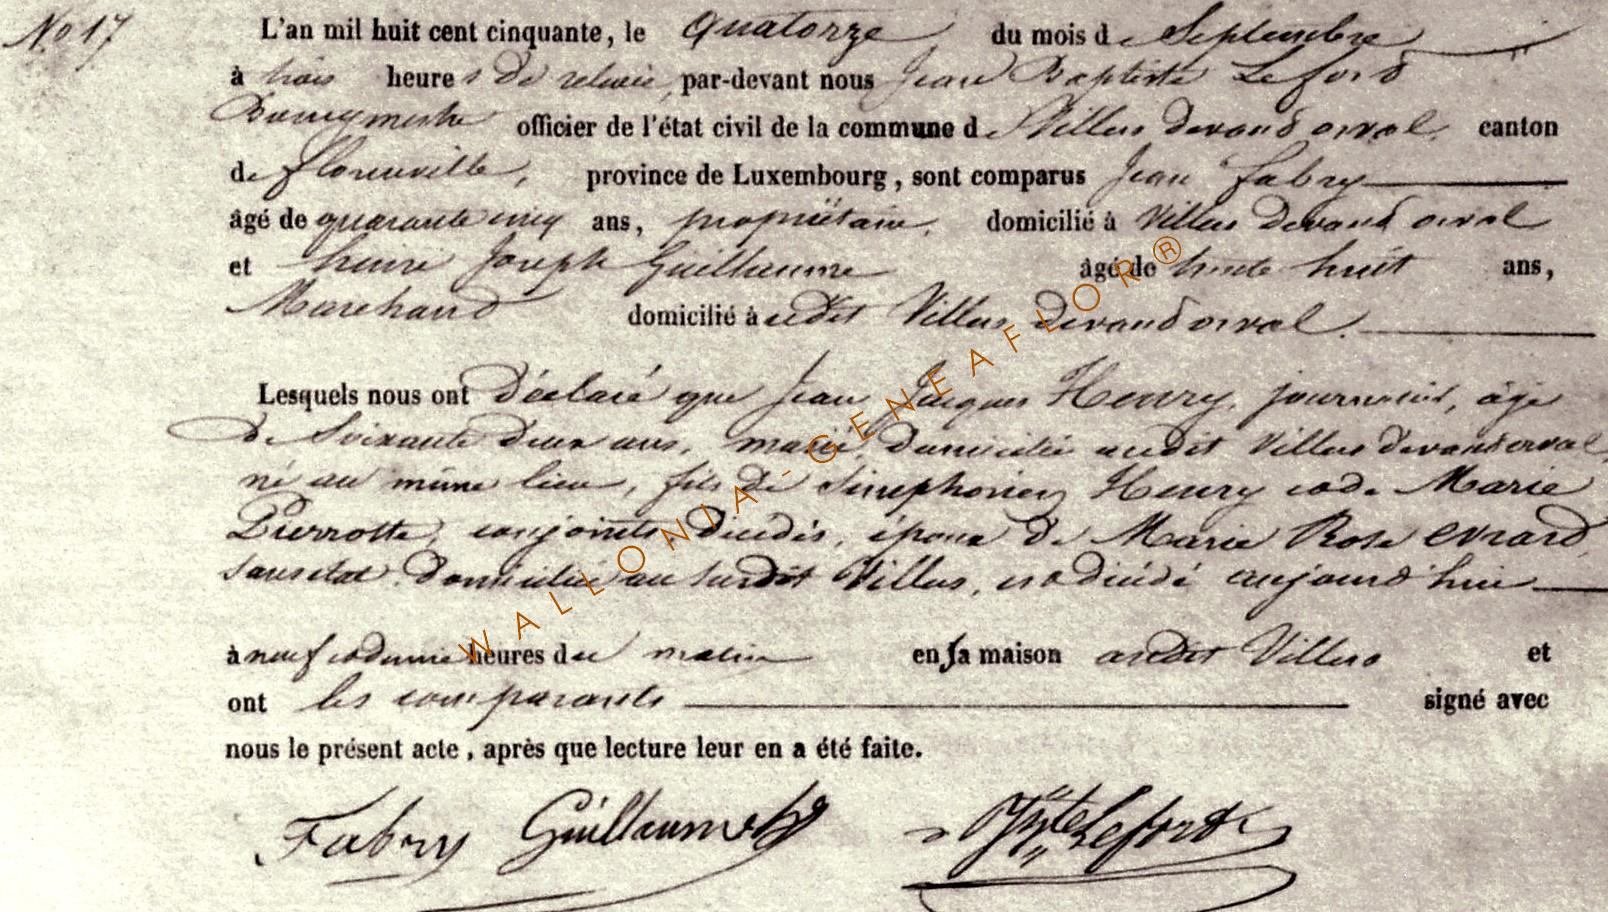 No 17
L'an mil huit cent cinquante, le Quatorze du mois de Septembre
à trois heures de relevée, par-devant nous Jean Baptiste Lefort
Bourgmestre officier de l'état civil de la commune de Villers devand orval, canton
de florenville, province de Luxembourg, sont comparus Jean fabry
âgé de quarante cinq ans, propriétaire, domicilié à Villers Devand orval
et henri Joseph Guillaume âgé de trente huit ans,
Marchand domicilié à audit Villers devand orval.
Lesquels nous ont déclaré que Jean Jacques Henry, journalier, âgé
de Soixante deux ans, marié, domicilié audit Villers devand orval,
né au même lieu, fils de Sinephorien Henry et de Marie
Pierrotte, conjoints décédés, époux de Marie Rose Evrard,
sans etat, domiciliée au susdit Villers, est décédé aujourd'hui
à neuf et demie heures du matin en sa maison audit Villers et
ont les comparants signé avec
nous le présent acte, après que lecture leur en a été faite.
Fabry Guillaume Lefort
WALLONIA-GENEAFLOR®